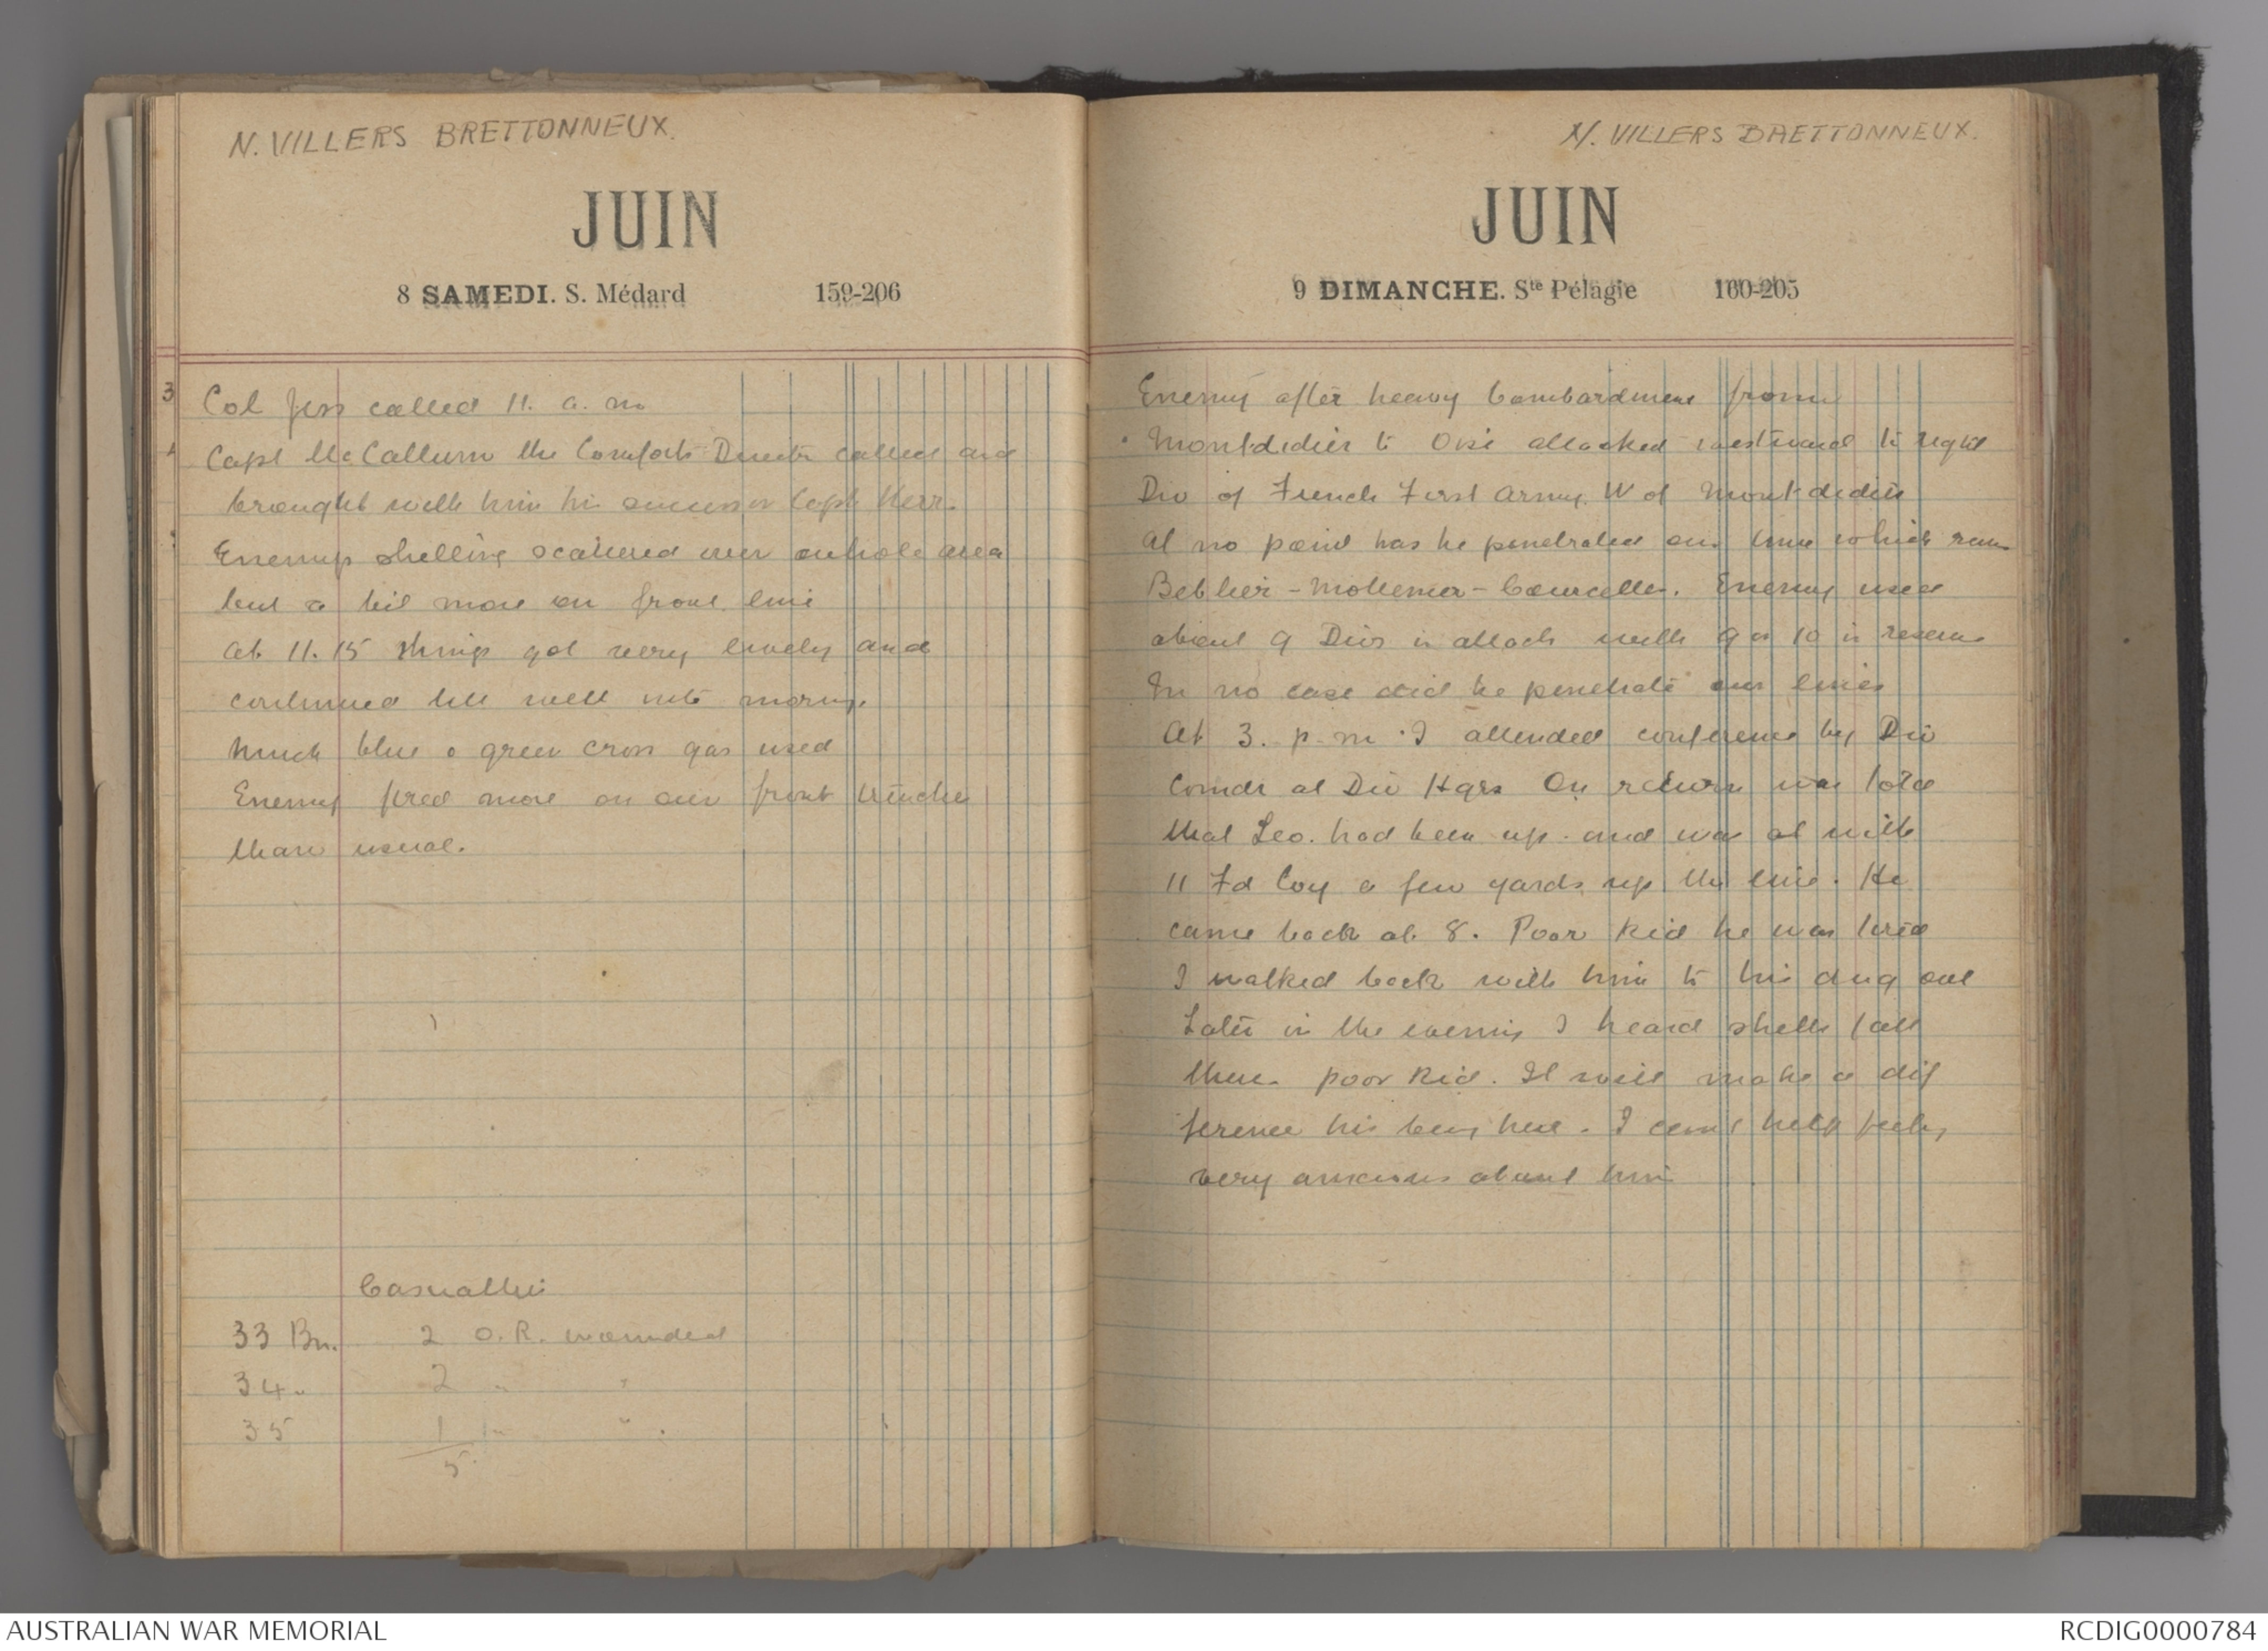 N. VILLERS BRETTONNEUX.
JUIN
8 SAMEDI. S. Médard 159-206
Col Jess called 11. a. m
Capt McCallum the Comforts Director called and
brought with him his successor Capt Kerr.
Enemys shelling scattered over whole area
but a bit more on front line
At 11.15 things got very lively and
continued till well into morning.
Much blue & green cross gas used
Enemy fired more on our front trenches
than usual.
Casualties
33 Bn. 2 O.R. wounded
34 " 2 " "
35 1 " "
5
N. VILLERS BRETTONNEUX.
JUIN
9 DIMANCHE. Ste Pélagie 160-205
Enemy after heavy bombardment from
Montdidier to Oise attacked westward to right
Div of French First Army W of Montdidier
At no point has he penetrated our line which runs
- Courcelles. Enemy used
about 9 Divs in attack with 9 or 10 in reserve
In no case did he penetrate our lines
At 3. p.m I attended conference by Div
Comdr at Div Hqrs On return was told
that Leo. had been up and was at with
11 Fd Coy a few yards up the line. He
came back at 8. Poor kid he was tired
I walked back with him to his dug out
Later in the evening I heard shells fall
there. poor kid. It will make a dif
ference his being here. I cant help feeling
very anxious about him
AUSTRALIAN WAR MEMORIAL
RCDIG0000784